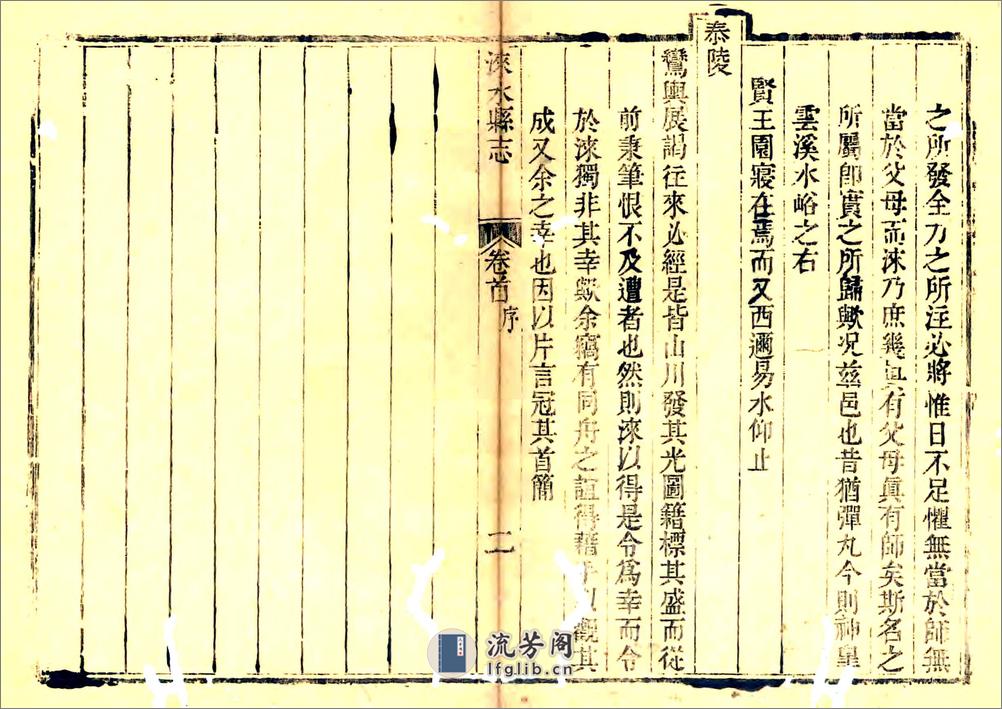 之所發全力之所注必將惟日不足懼無當於師無
當於父母而淶乃庶幾眞有父母眞有師矣斯名之
所屬卽實之所歸歟况兹邑也昔猶彈丸今則神皇
雲溪水峪之右
賢王園寢在焉而又西邇易水仰止
泰陵
鸞輿展謁往來必經是皆山川發其光圖籍標其盛而從
前秉筆恨不及遭者也然則淶以得是令爲幸而令
於淶獨非其幸歟余竊有同舟之誼得藉手以觀其
成又余之幸也因以片言冠其首簡
淶水縣志
卷首
序
二
流芳阁
lfglib.cn